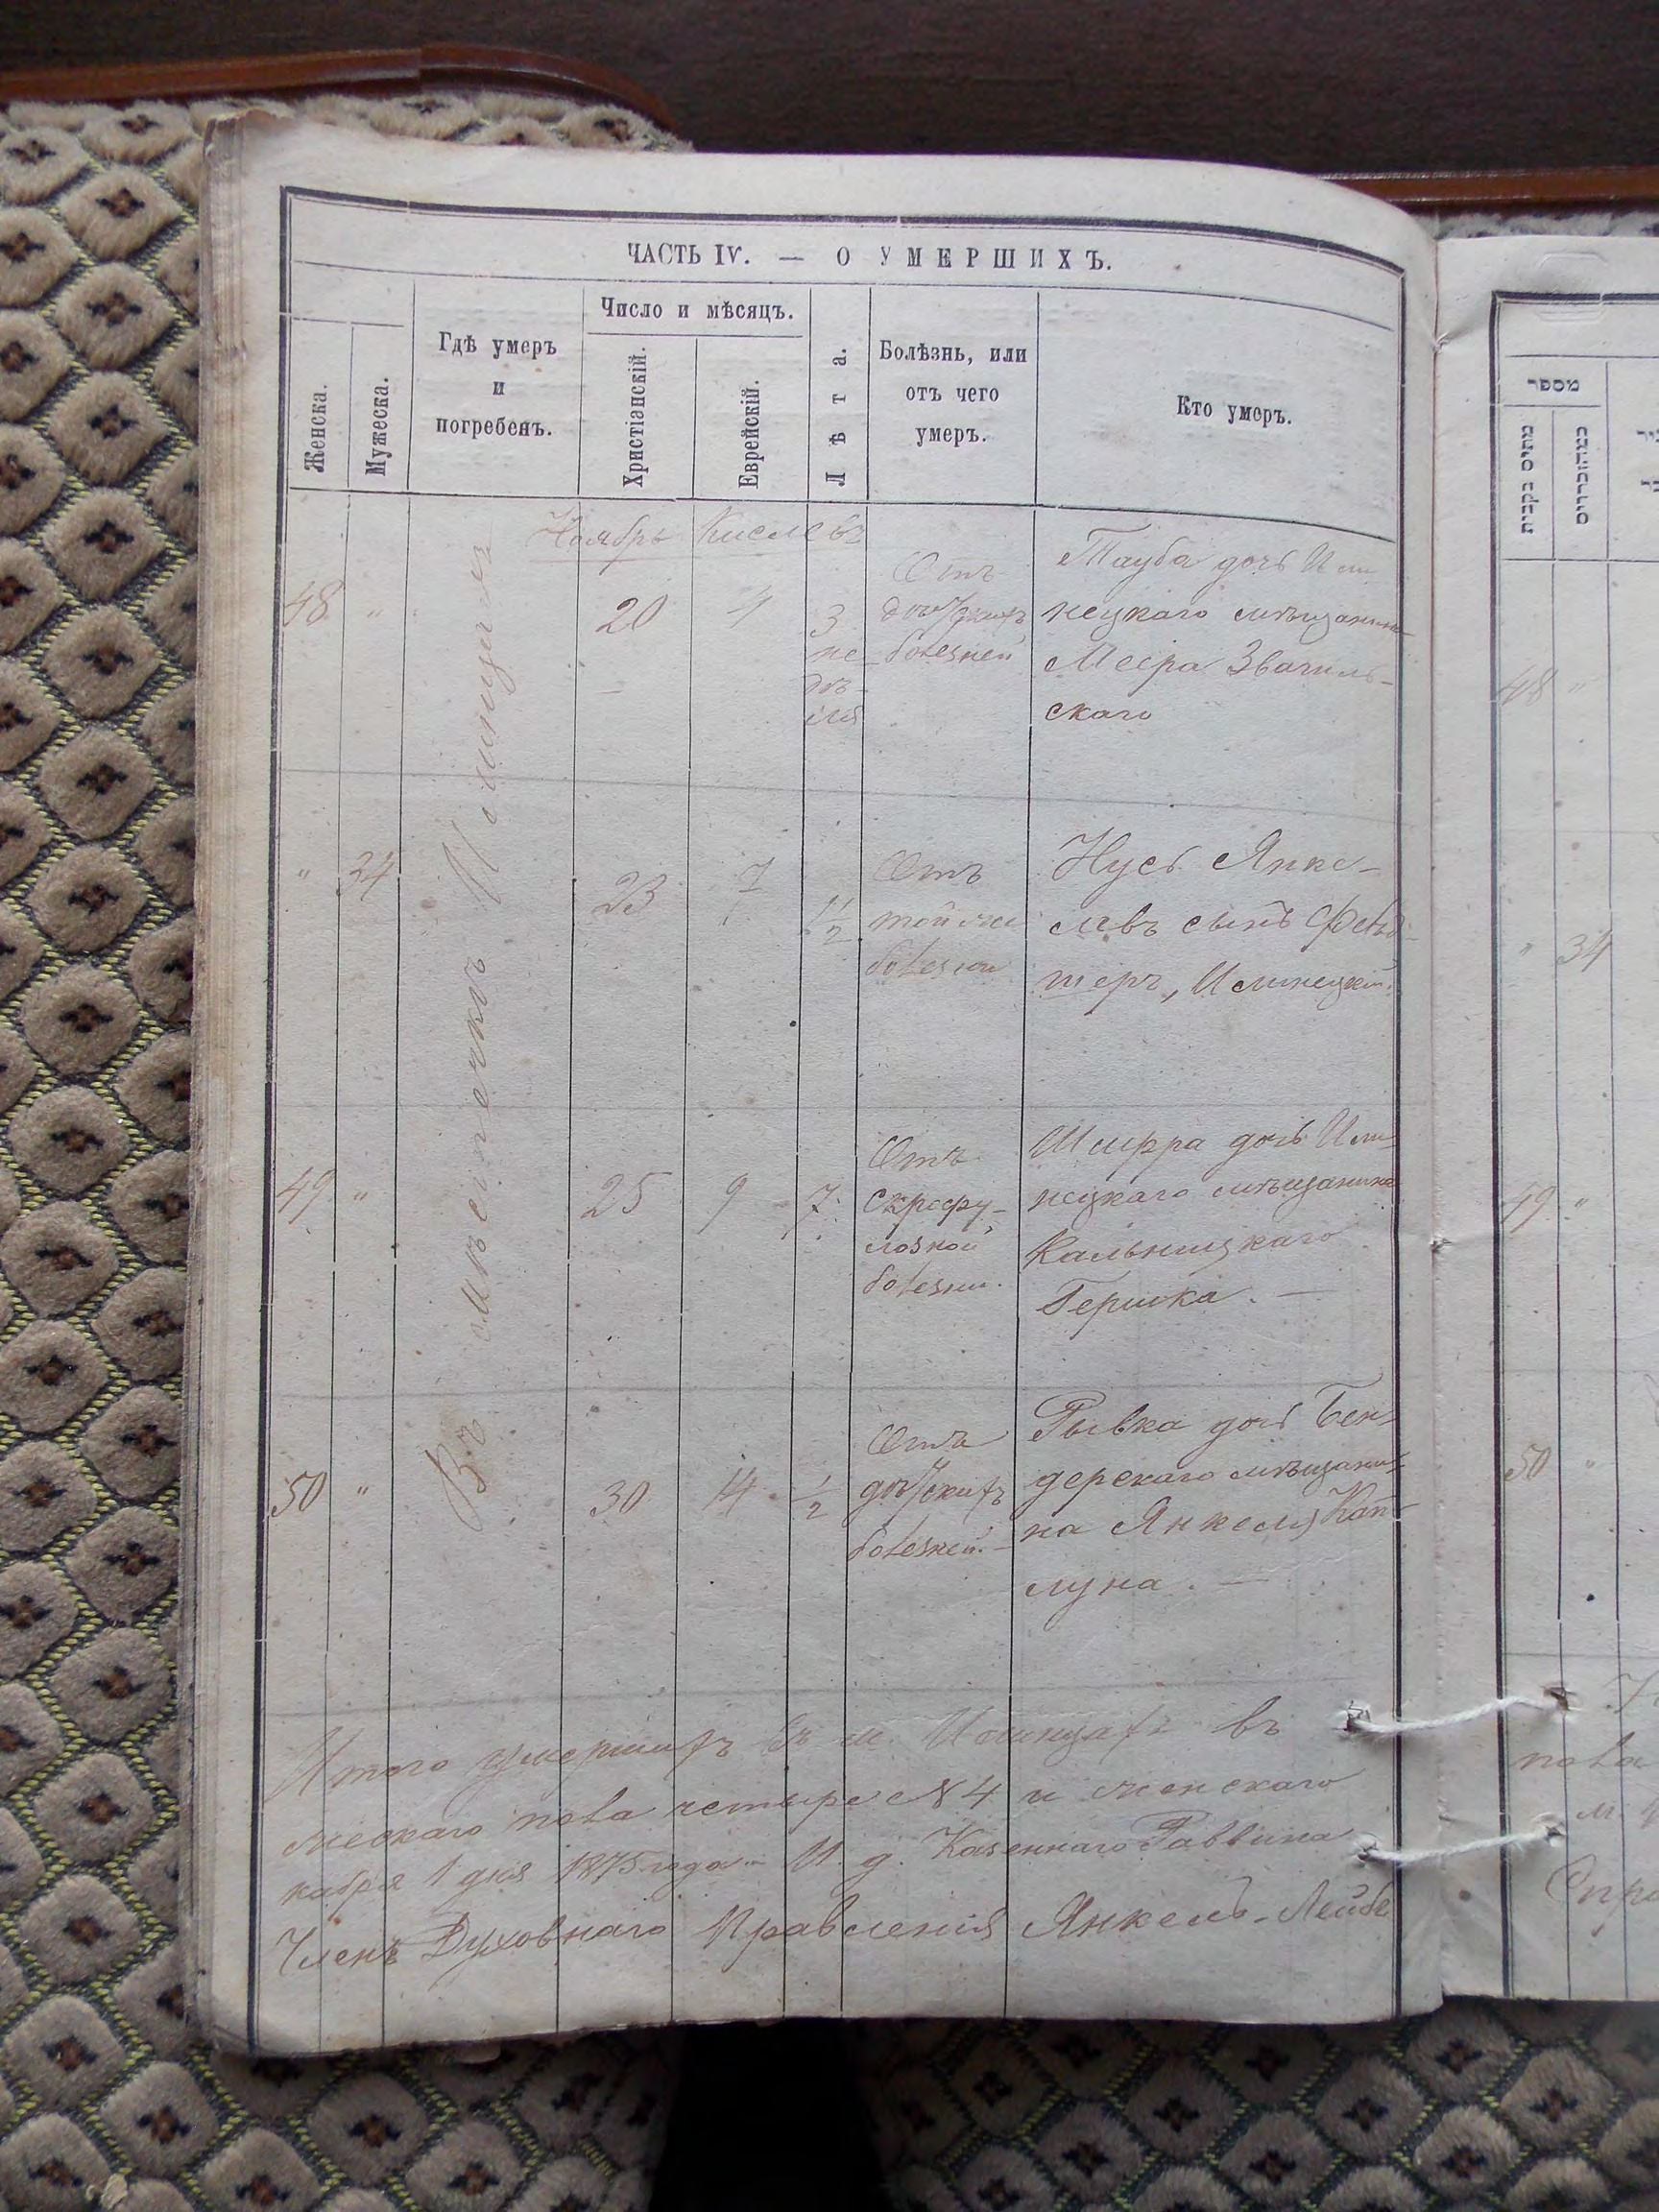 ЧАСТЬ IV. — О УМЕРШИХЪ.
Женска.
Мужеска.
Гдѣ умеръ
и
погребенъ.
Число и мѣсяцъ.
Христіанскій.
Еврейскій.
Лѣта.
Болѣзнь, или
отъ чего
умеръ.
Кто умеръ.
Въ мѣстечкѣ
Ноябрь Кислевъ
48 " 20 4
3
не-
дѣ-
ля
Отъ
дѣтскихъ
болезней
Тауба дочь Или
нецкаго мѣщанина
Меера Звагиль-
скаго
" 34 23 7 1 1/2
Отъ
той же
болезни
Нусь Янке-
левъ сынъ
Илинецкій
49 " 25 9 7
Отъ
Скрофу-
лозной
болезни.
Шифра дочь Или
нецкаго мѣщанина
Кальницкаго
Гершка. —
50 " 30 14 1/2
Отъ
дѣтскихъ
болезней. —
Рывка дочь Бен-
дерскаго мѣщани-
на Янкеля Кап-
луна. —
Итого умершихъ въ м. Илинцахъ въ
пола четыре №4 и женскаго
кабря 1 дня 1875 года. И. д. Казеннаго Раввина
Членъ Духовнаго Правленія Янкель-Лейбе
מספר
48 "
" 34
49 "
50 "
пола